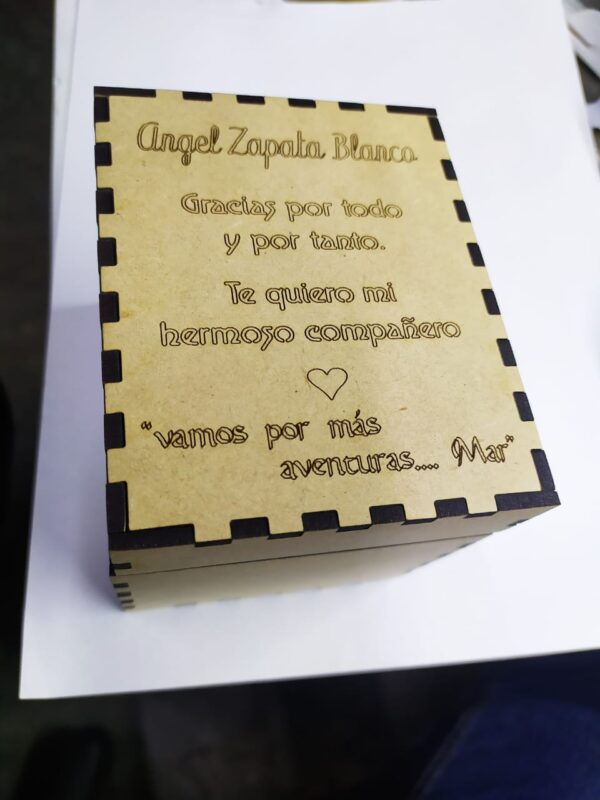 Angel Zapata Blanco
Gracias por todo
y por tanto.
Te quiero mi
hermoso compañero
"vamos por más
aventuras.... Mar"